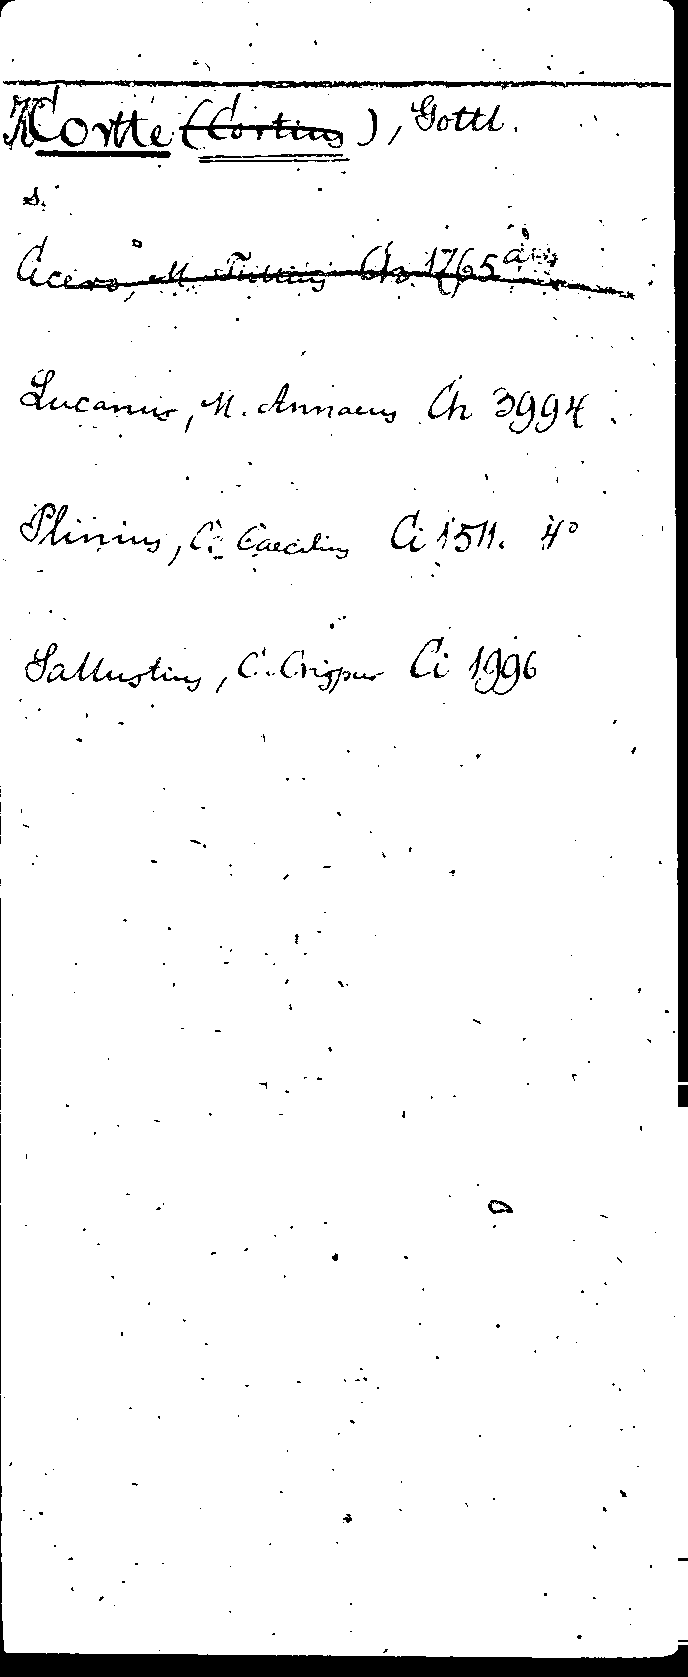 Kortte (Cortius), Gottl.
s.
Cicero, M. Tullius Ch 1765
Lucanus, M. Annaeus Ch 3994.
Plinius, C. Caecilius Ci 1511. 4°
Sallustius, C. Crispus Ci 1996